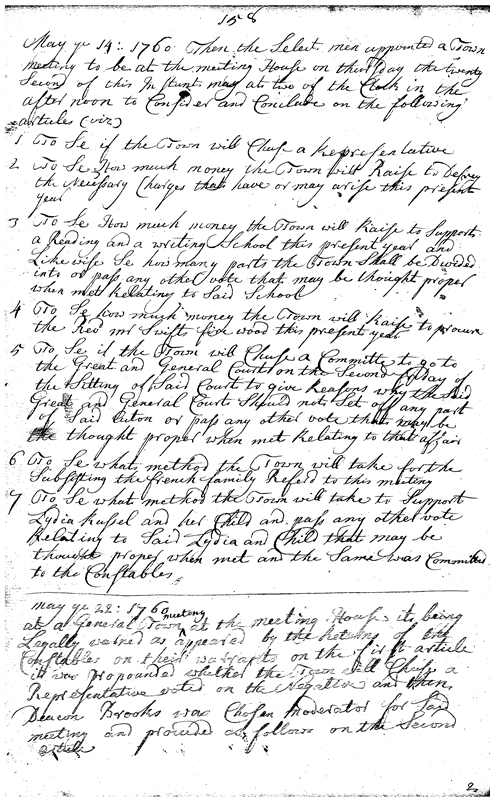 158
May ye 14: 1760 Then the Select men appointed a Town
meeting to be at the meeting House on thursday the twenty
Second of this Instant may at two of the Clock in the
after noon to Consider and Conclude on the following
articles (viz)
1 To Se if the Town will Chuse a Representative
2 To Se How much money the Town will Raise to Defrey
the Necessary Charges that have or may arise this present
year
3 To Se How much money the Town will Raise to Support
a Reading and a writing School this present year and
Likewise Se how many parts the Town Shall be Divided
into or pass any other vote that may be thought proper
when met Relating to Said School
4 To Se how much money the Town will Raise to procure
the Revd mr Swifts fire wood this present year
5 To Se if the Town will Chuse a Committe to go to
the Great and General Court on the Second Day of
the Sitting of Said Court to give Reasons why the Said
Great and General Court Should not Set off any part
of Said or pass any other vote that may be
the thought proper when met Relating to that affair
6 To Se what method the Town will take for the
Subsisting the french family Referd to this meeting
7 To Se what method the Town will take to Support
Lydia Russel and her Child and pass any other vote
Relating to Said Lydia and Child that may be
thought proper when met and the Same was Committed
to the Constables
may ye 22: 1760
at a General Town meeting at the meeting House its being
Legally warned as appeared by the Returns of the
Constables on their warrants on the first article
it was propounded whether the Town will Chuse a
Representative voted on the Negative and then
Deacon Brooks was Chosen moderator for Said
meeting and proceded as follows on the Second
article
2